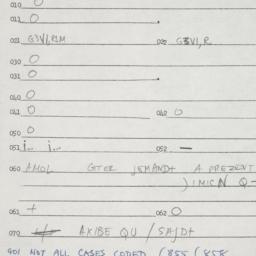 010 O
012 O .
021 G3V1,R1M 022 G3V1,R
030 O
031 O .
040 O
041 O 042 O
050 O
051 i.. i.. 052 —
060 AMOL GTER JEMAND+ A PREZENT
)IMICN Q-
061 + 062 O
070 AXIBE QU / SAJD+
901 NOT ALL CASES CODED (855 (858